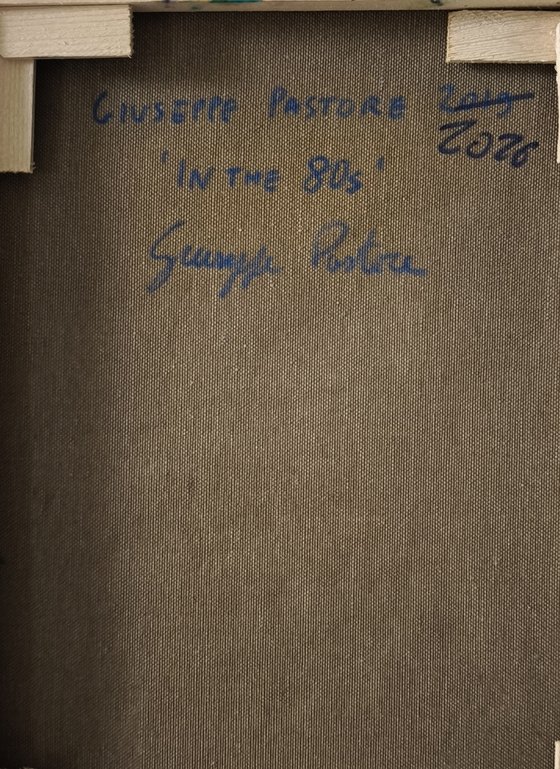 GIUSEPPE PASTORE 2019
2026
'IN THE 80s'
Giuseppe Pastore